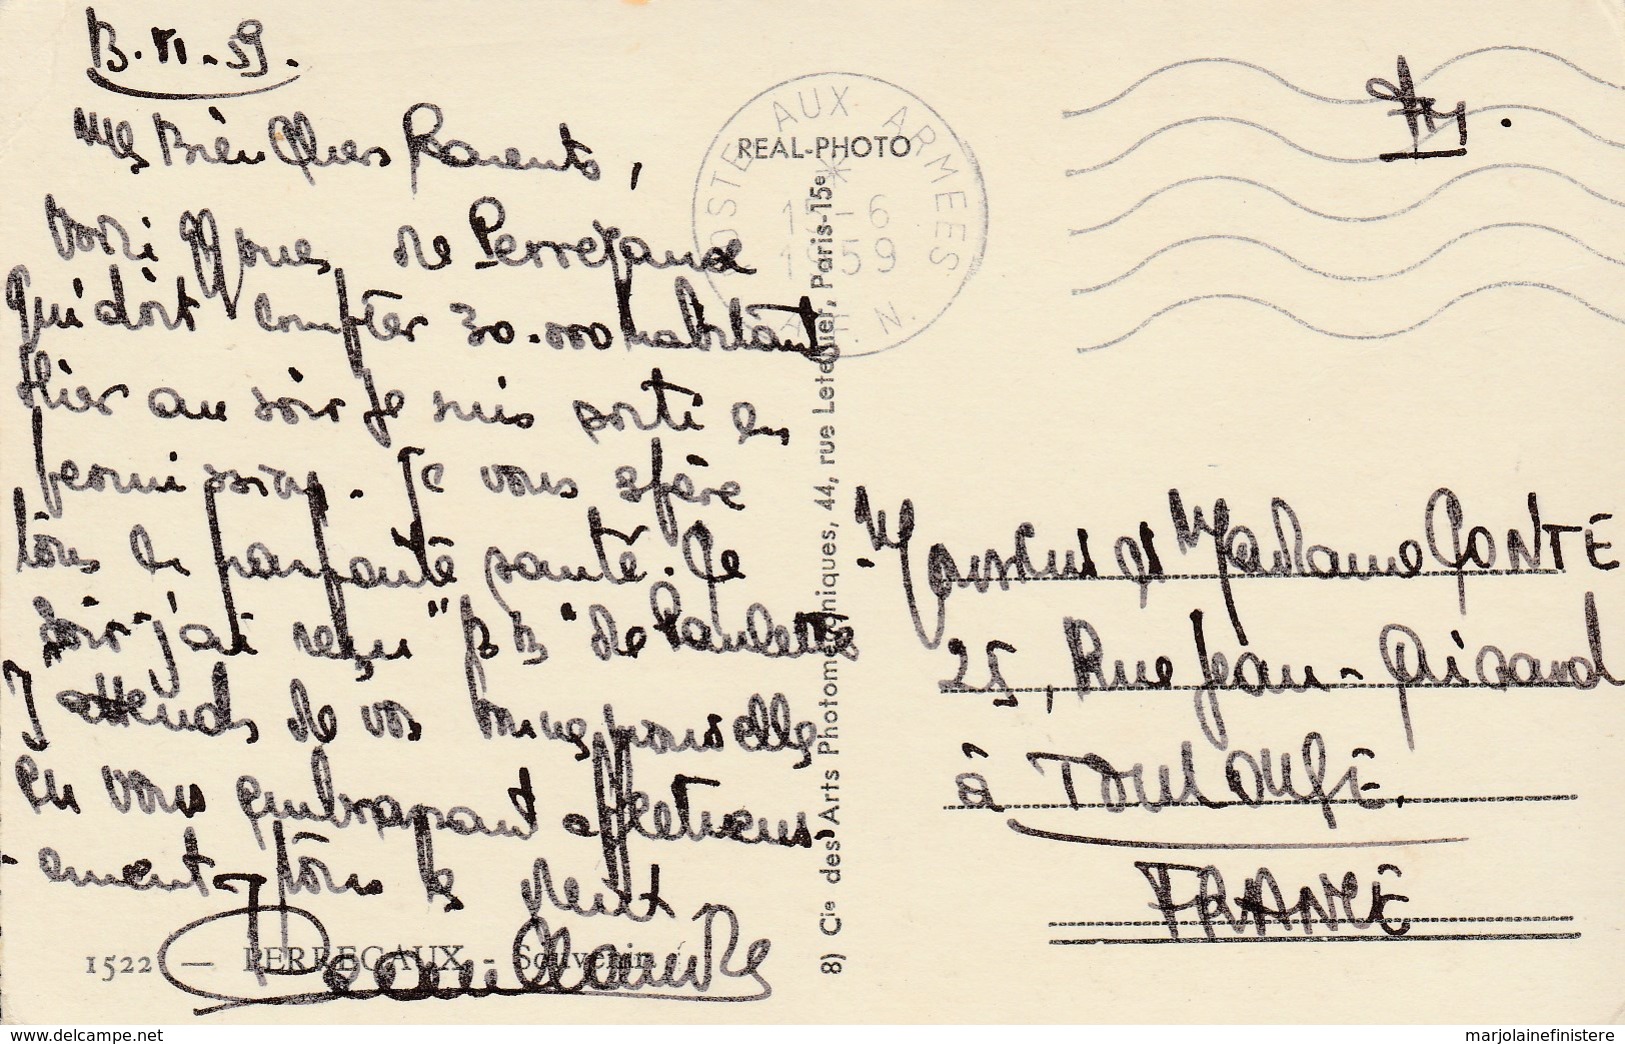 13.VI.59.
Mes Bien Chers Parents,
Voici qques de Perregaux
qui doit compter 30.000 habitants
Hier au soir je suis sorti en
permission. Je vous espère
tous en parfaite santé. Ce
soir j'ai reçu de Paulette
J'attends de vos bonnes nouvelles
en vous embrassant affectueus
-ement tous les deux
1522 — PERREGAUX - Souvenir
REAL-PHOTO
POSTE AUX ARMEES
-6
1959
A.F.N.
8) Cie des Arts Photomécaniques, 44, rue Letellier, Paris-15e
FM.
Monsieur et Madame CONTE
25, Rue Jean-
à TOULOUSE.
FRANCE
marjolainefinistere